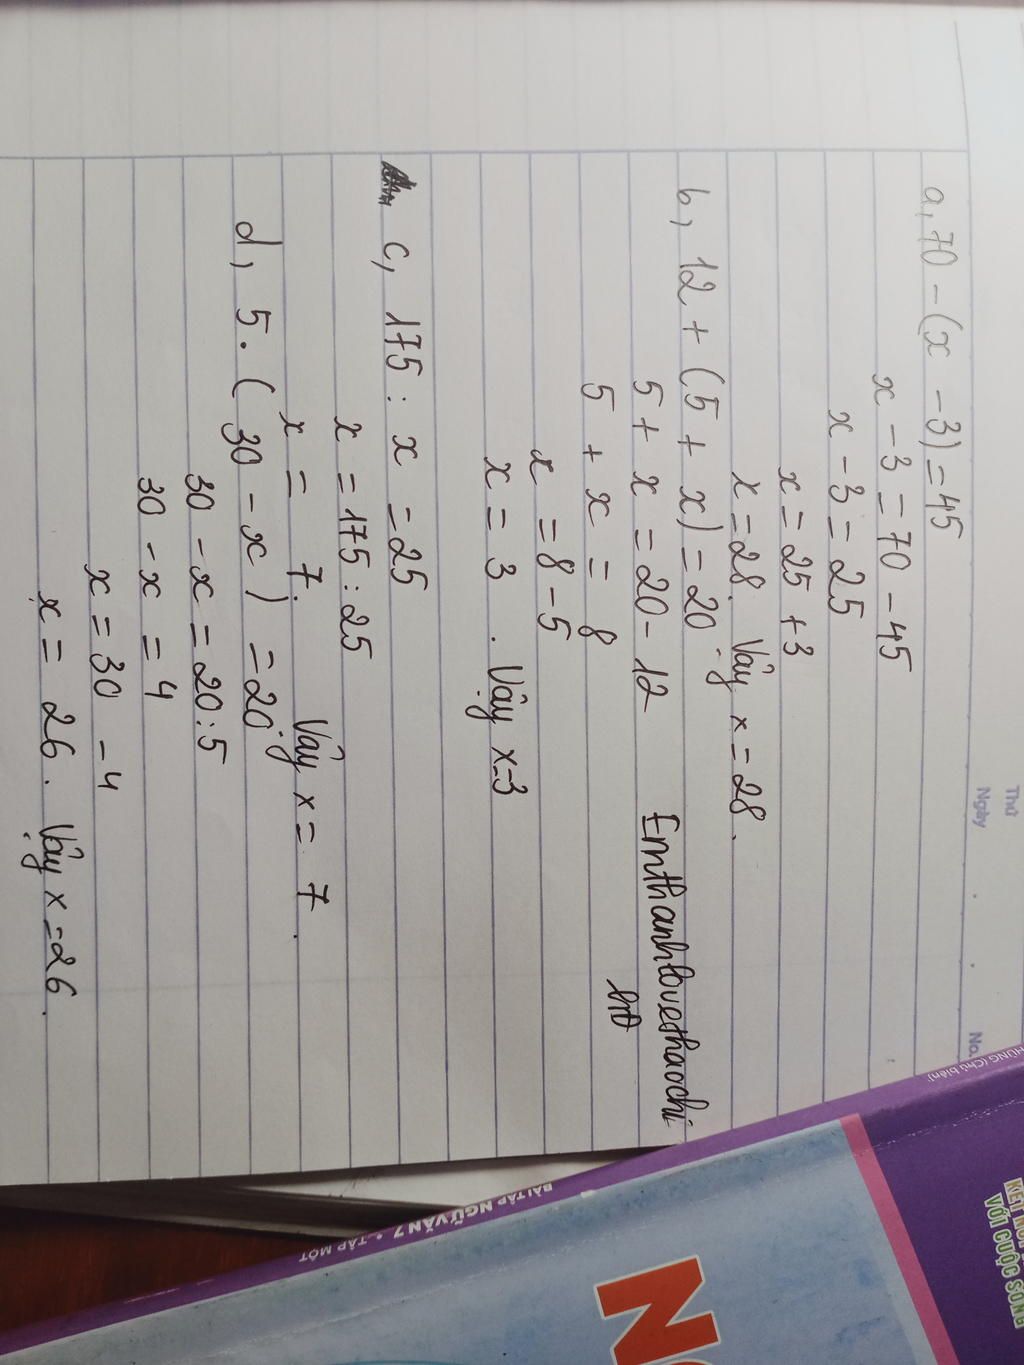 Thứ
Ngày
No.
a, 70 - (x - 3) = 45
x - 3 = 70 - 45
x - 3 = 25
x = 25 + 3
x = 28. Vậy x = 28.
b, 12 + (5 + x) = 20
5 + x = 20 - 12
Emthanhlovethaochi
5 + x = 8
x = 8 - 5
x = 3. Vậy x = 3
c, 175 : x = 25
x = 175 : 25
x = 7. Vậy x = 7.
d, 5 . (30 - x) = 20
30 - x = 20 : 5
30 - x = 4
x = 30 - 4
x = 26. Vậy x = 26.
HÙNG (Chủ biên)
KẾT NỐI
VỚI CUỘC SỐNG
BÀI TẬP NGỮ VĂN 7 • TẬP MỘT